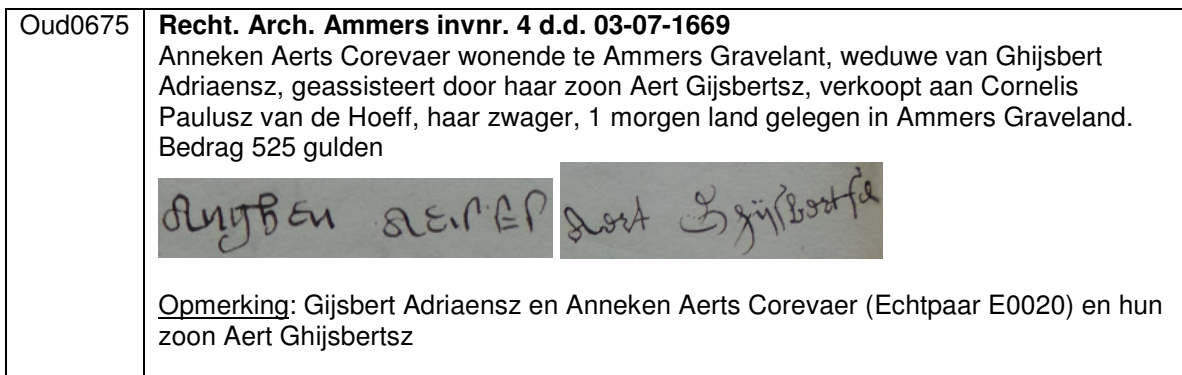 Oud0675
Recht. Arch. Ammers invnr. 4 d.d. 03-07-1669
Anneken Aerts Corevaer wonende te Ammers Gravelant, weduwe van Ghijsbert
Adriaensz, geassisteert door haar zoon Aert Gijsbertsz, verkoopt aan Cornelis
Paulusz van de Hoeff, haar zwager, 1 morgen land gelegen in Ammers Graveland.
Bedrag 525 gulden
Aert
Opmerking: Gijsbert Adriaensz en Anneken Aerts Corevaer (Echtpaar E0020) en hun
zoon Aert Ghijsbertsz